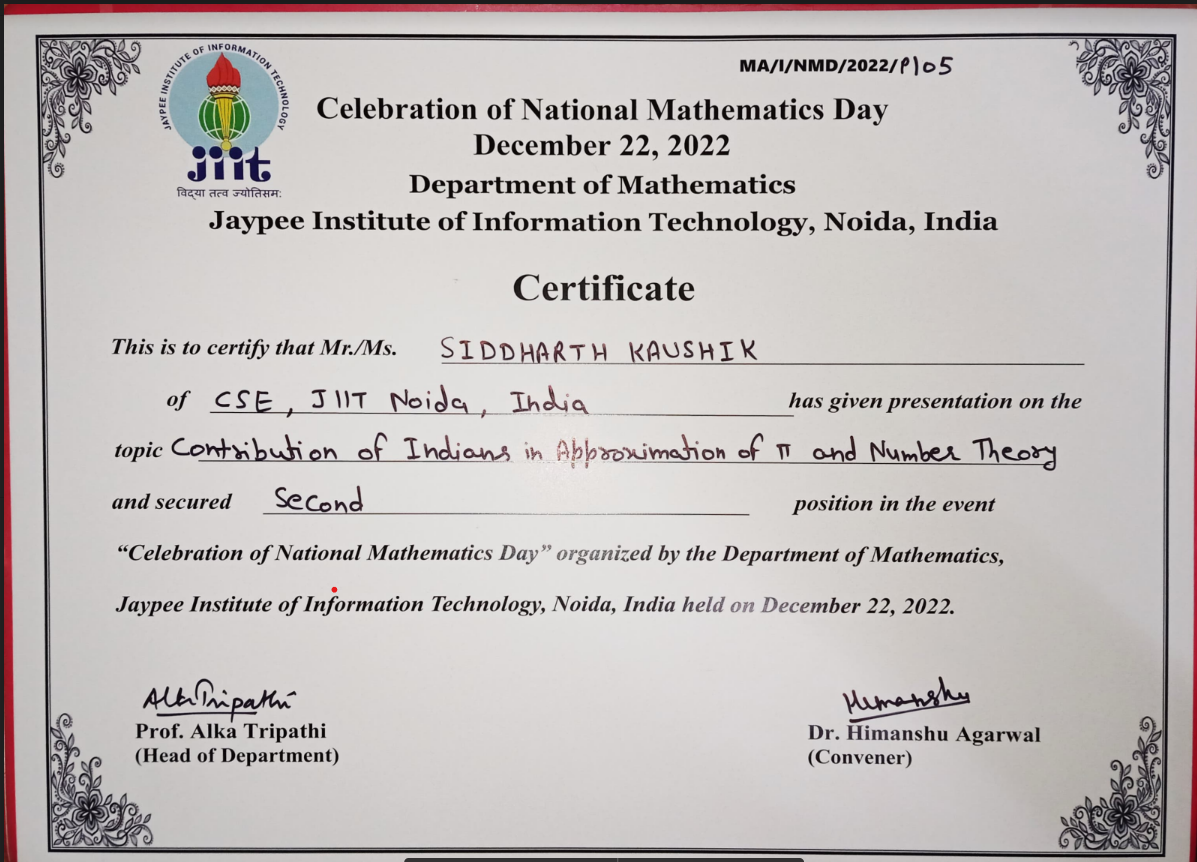 JAYPEE INSTITUTE OF INFORMATION TECHNOLOGY
jiit
विद्या तत्व ज्योतिसम:
MA/I/NMD/2022/P105
Celebration of National Mathematics Day
December 22, 2022
Department of Mathematics
Jaypee Institute of Information Technology, Noida, India
Certificate
This is to certify that Mr./Ms. SIDDHARTH KAUSHIK
of CSE, JIIT Noida, India has given presentation on the
topic Contribution of Indians in Approximation of π and Number Theory
and secured Second position in the event
“Celebration of National Mathematics Day” organized by the Department of Mathematics,
Jaypee Institute of Information Technology, Noida, India held on December 22, 2022.
Alka Tripathi
Prof. Alka Tripathi
(Head of Department)
Himanshu
Dr. Himanshu Agarwal
(Convener)